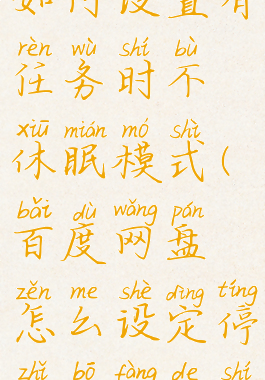 如何设置有
rèn wù shí bù
任务时不
xiū mián mó shì
休眠模式(
bǎi dù wǎng pán
百度网盘
zěn me shè dìng tíng
怎么设定停
zhǐ bō fàng de shí